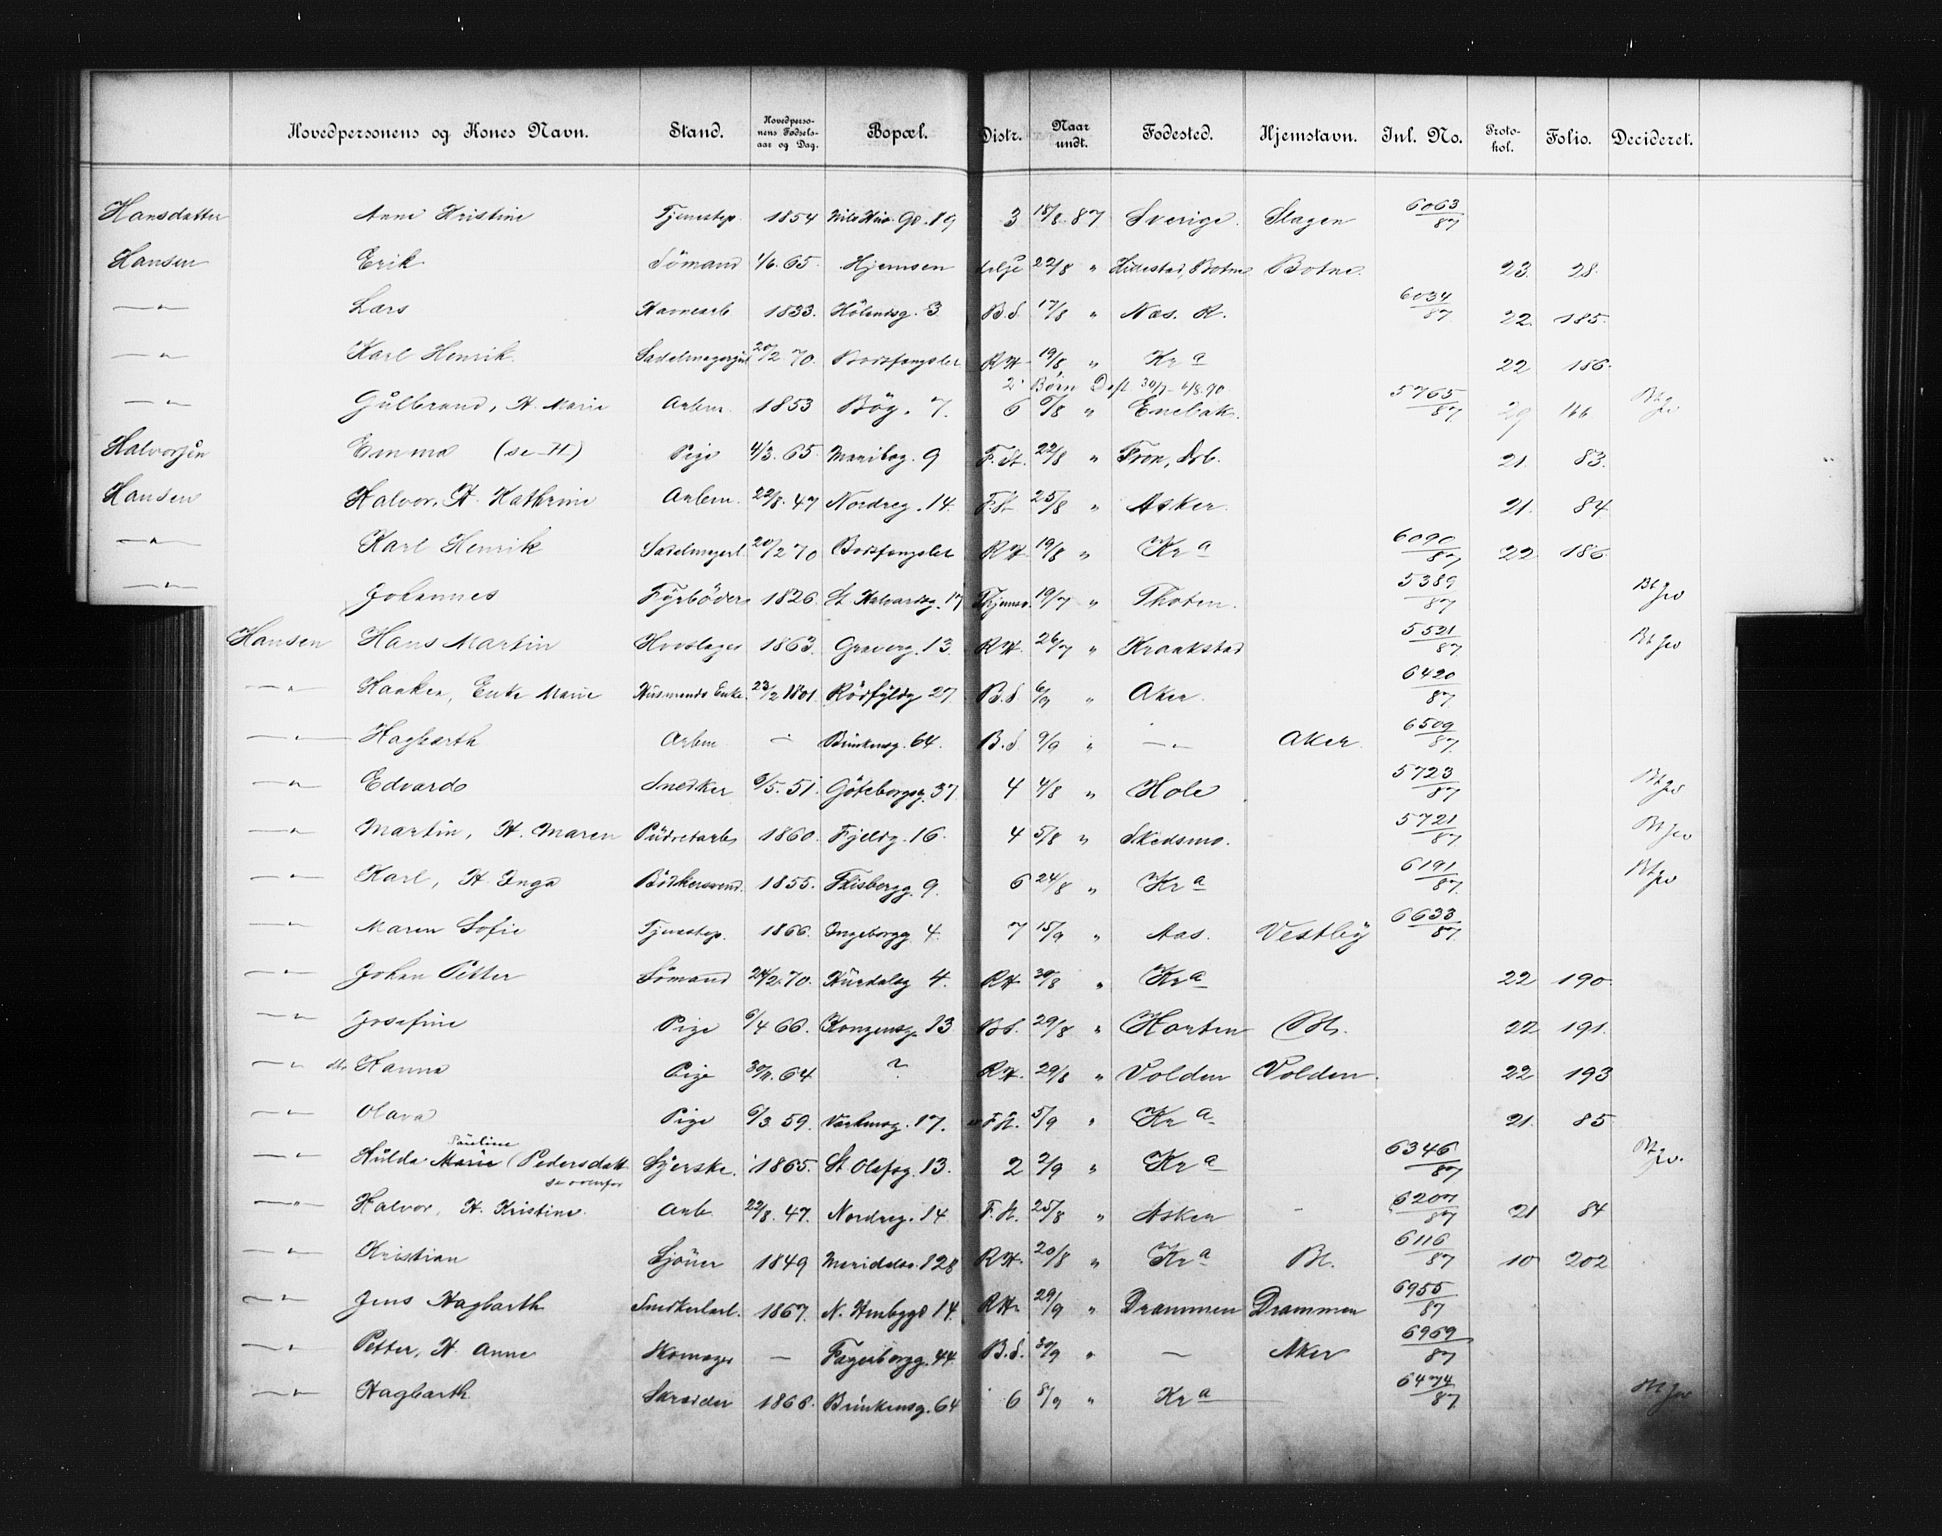 Hovedpersonens og Kones Navn. Stand. Hovedpersonens Fødselsaar og Dag. Bopæl. Distr. Naar undt. Fødested. Hjemstavn. Inl. No. Protohol. Folio. Decideret.
Hansdatter Anne Kristine Tjenestep. 1854 19 3 18/8 87 Sverige. Slagen 6063/87
Hansen Erik Sömand 1/6 65. Hjemsen 22/8 " Hillestad, Botne Botne. 23 28.
—"— Lars Havnearb 1833. Hölandsg. 3 B.d. 17/8 " Næs. R. 6034/87 22 185.
—"— Karl Henrik Sadelmagersv 20/2 70. Bodsfængslet RH 19/8 " Kr a 22 186.
2 Börn Döpt 30/7 - 6/8.90
—"— Gulbrand, H. Marie Arbm. 1853 Bög. 7. 6 6/8 " Enebak. 5765/87 29 166
Halvorsen Emma (se H) Pige 4/3. 65. Maribog. 9 F.St. 22/8 " Fron, Grb. 21. 83.
Hansen Halvor, H. Kathrine Arbm. 22/8. 47 Nordreg. 14. F.St 25/8 " Asker. 21. 84
—"— Karl Henrik Sadelmagerl. 20/2 70 Bodsfængslet RH 19/8 " Kr a 6090/87 22 186
—"— Johannes Fyrböder 1826. St Halvardsg. 17 19/7 " Thoten. 5389/87
Hansen Hans Martin Hovslager 1863. Graverg. 13. RH. 26/7 " Kraakstad 5521/87
—"— Haaken, Enke Marie Husmands Enke. 23/2 1801. Rödfyldg 27. B.d 6/9 " Aker. 6420/87
—"— Hagbarth Arbm — Brinkensg. 64. B.d 9/9 " —"— Aker. 6509/87
—"— Edvard Snedker 6/5. 51. Göteborgsg. 37 4 4/8 " Hole 5723/87
—"— Martin, H. Maren Pudretarb 1860. Fjeldg. 16. 4 5/8 " Skedsmo. 5721/87
—"— Karl, H. Inga Bödkersvend. 1855. Flisbergg. 9. 6 24/8 " Kr a 6191/87
—"— Maren Sofie Tjenestep. 1866. Ingeborgg. 4. 7 15/9 " Aas. Vestby 6633/87
—"— Johan Petter Sömand 24/2. 70. Hurdalsg 4. RH 30/8 " Kr a 22 190
—"— Josefine Pige 6/4 66. Kongensg. 13 B.d. 29/8 " Horten Bl. 22 191.
—"— dtr Hanna Pige 64 RH. 29/8 " Volden Volden. 22 193
—"— Olava Pige 6/3 59. 17. F.St. 5/9 " Kr a 21. 85.
Pauline
—"— Hulda Marie (Pedersdatt Syerske. 1865. St Olafsg. 13. 2 2/9 " Kr a 6346/87
se ovenfor
—"— Halvor, H. Kristine Arb 22/8. 47. Nordreg. 14 F.St. 25/8 " Asker — 6207/87 21 84
—"— Kristian Sjöner 1849 Maridalsv. 128 RH. 20/8 " Kr a Bl. 6116/87 10 202
—"— Jens Hagbarth Snedkerlærl. 1867. N. 14. RH 29/9 " Drammen Drammen 6955/87
—"— Petter, H. Anne Skomager — Fagerborgg. 44. B.d. 30/9 " — Aker 6969/87
—"— Hagbarth Skræder 1868. Brinkensg. 64 6 8/9 " Kr a 6474/87